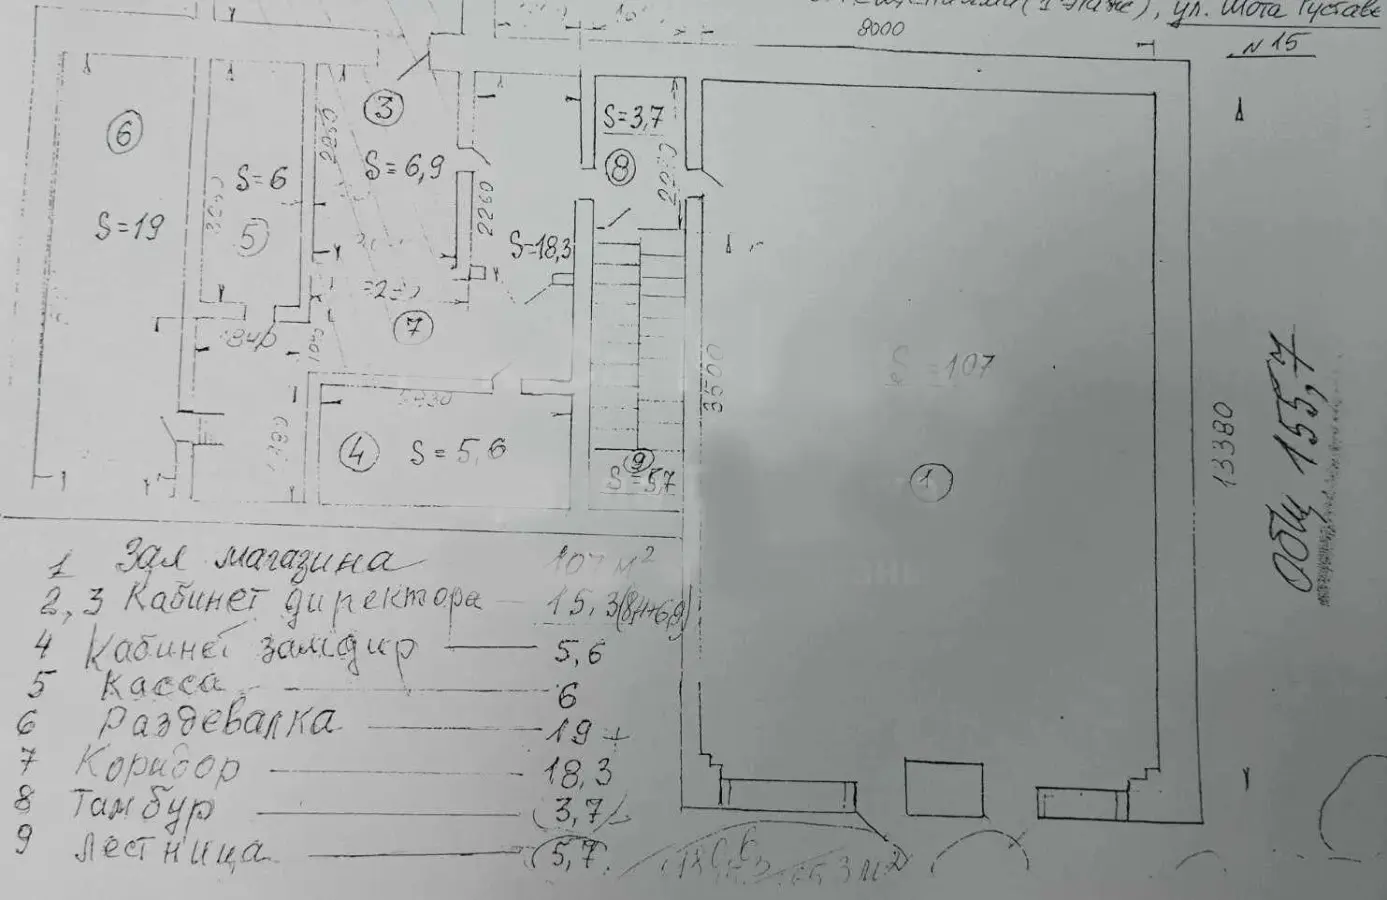 (1 этаж), ул. Шота Руставе
8000
N 15
6
S=19
S=6
5
3
S=6,9
2260
S=18,3
S=3,7
8
7
S=107
3500
1
13380
общ 155,7
4
S=5,6
9
S=5,7
1 Зал магазина 107 м²
2,3 Кабинет директора 15,3(8,4+6,9)
4 Кабинет замдир 5,6
5 Касса 6
6 Раздевалка 19 +
7 Коридор 18,3
8 Тамбур (3,7)
9 Лестница (5,7)